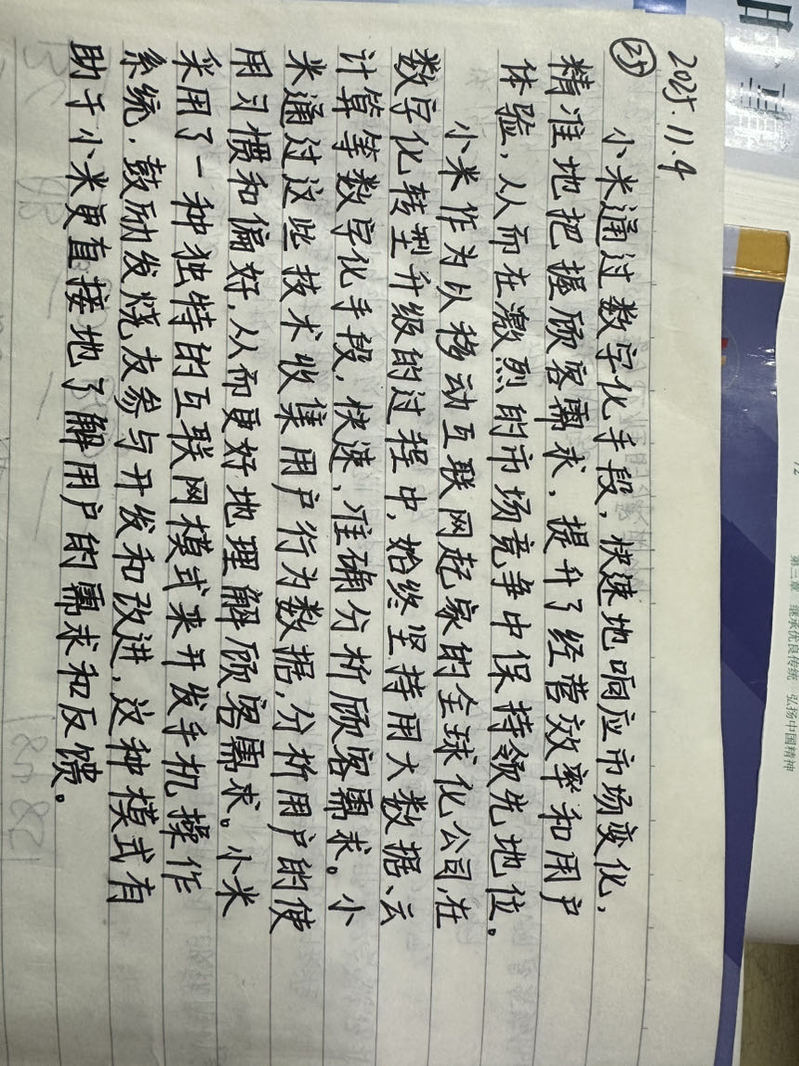 2025.11.4
㉕ 小米通过数字化手段，快速地响应市场变化，
精准地把握顾客需求，提升了经营效率和用户
体验，从而在激烈的市场竞争中保持领先地位。
小米作为以移动互联网起家的全球化公司，在
数字化转型升级的过程中，始终坚持用大数据、云
计算等数字化手段，快速、准确分析顾客需求。小
米通过这些技术收集用户行为数据，分析用户的使
用习惯和偏好，从而更好地理解顾客需求。小米
采用了一种独特的互联网模式来开发手机操作
系统，鼓励发烧友参与开发和改进，这种模式有
助于小米更直接地了解用户的需求和反馈。
72
第三章 继承优良传统 弘扬中国精神